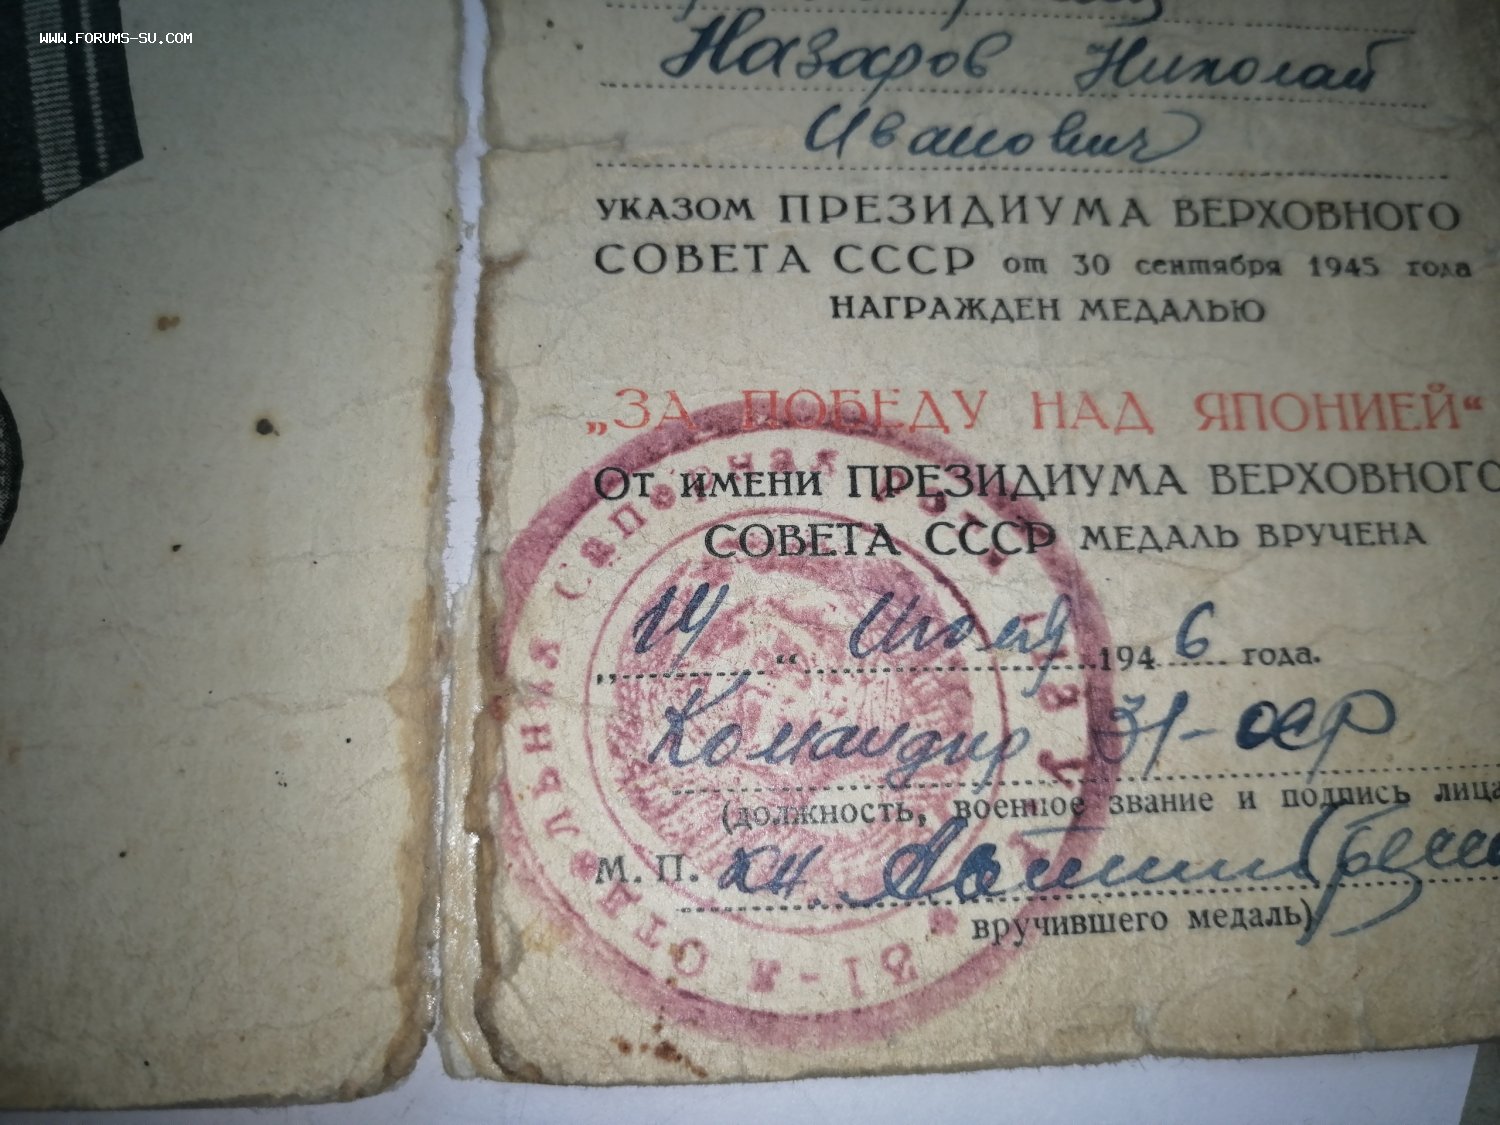 WWW.FORUMS-SU.COM
Назаров Николай
Иванович
УКАЗОМ ПРЕЗИДИУМА ВЕРХОВНОГО
СОВЕТА СССР от 30 сентября 1945 года
НАГРАЖДЕН МЕДАЛЬЮ
„ЗА ПОБЕДУ НАД ЯПОНИЕЙ“
От имени ПРЕЗИДИУМА ВЕРХОВНОГО
СОВЕТА СССР МЕДАЛЬ ВРУЧЕНА
„14“ Июля 1946 года.
Командир 31-оср
(должность, военное звание и подпись лица
М. П.
вручившего медаль)
31-я Отдельная Саперная рота